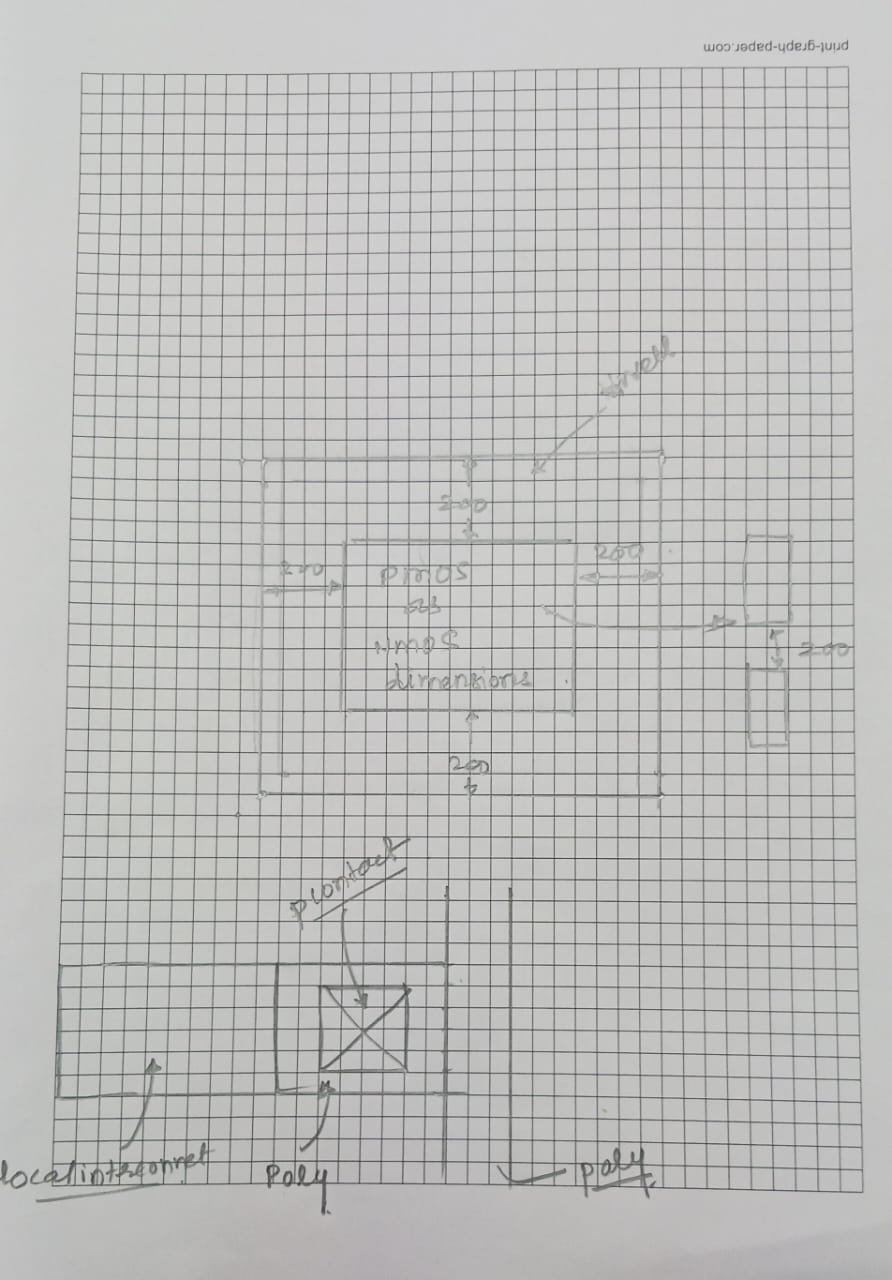 print-graph-paper.com
Nwell
200
200
200
PMOS
NMOS
dimensions
200
200
pcontact
localinterconnet
Poly
poly